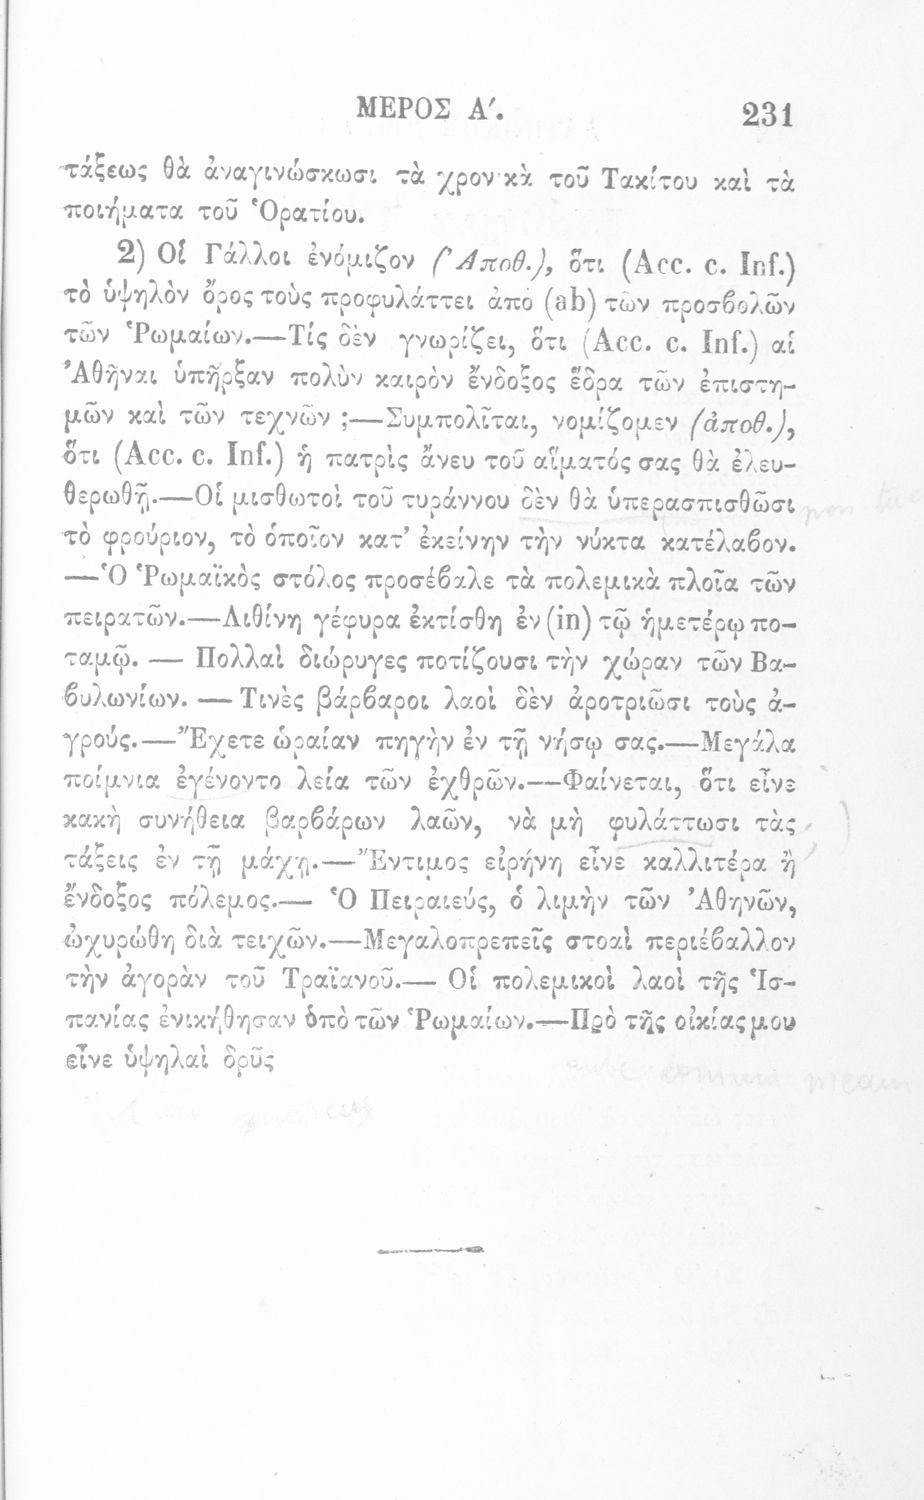 ΜΕΡΟΣ Α΄. 231
τάξεως θὰ ἀναγινώσκωσι τὰ χρονικὰ τοῦ Τακίτου καὶ τὰ
ποιήματα τοῦ Ὁρατίου.
2) Οἱ Γάλλοι ἐνόμιζον (Ἀποθ.), ὅτι (Acc. c. Inf.)
τὸ ὑψηλὸν ὄρος τοὺς προφυλάττει ἀπὸ (ab) τῶν προσβολῶν
τῶν Ῥωμαίων.—Τίς δὲν γνωρίζει, ὅτι (Acc. c. Inf.) αἱ
Ἀθῆναι ὑπῆρξαν πολὺν καιρὸν ἔνδοξος ἕδρα τῶν ἐπιστη-
μῶν καὶ τῶν τεχνῶν ;—Συμπολῖται, νομίζομεν (ἀποθ.),
ὅτι (Acc. c. Inf.) ἡ πατρὶς ἄνευ τοῦ αἵματός σας θὰ ἐλευ-
θερωθῇ.—Οἱ μισθωτοὶ τοῦ τυράννου δὲν θὰ ὑπερασπισθῶσι
τὸ φρούριον, τὸ ὁποῖον κατ’ ἐκείνην τὴν νύκτα κατέλαβον.
—Ὁ Ῥωμαϊκὸς στόλος προσέβαλε τὰ πολεμικὰ πλοῖα τῶν
πειρατῶν.—Λιθίνη γέφυρα ἐκτίσθη ἐν (in) τῷ ἡμετέρῳ πο-
ταμῷ. — Πολλαὶ διώρυγες ποτίζουσι τὴν χώραν τῶν Βα-
βυλωνίων. — Τινὲς βάρβαροι λαοὶ δὲν ἀροτριῶσι τοὺς ἀ-
γρούς.—Ἔχετε ὡραίαν πηγὴν ἐν τῇ νήσῳ σας.—Μεγάλα
ποίμνια ἐγένοντο λεία τῶν ἐχθρῶν.—Φαίνεται, ὅτι εἶνε
κακὴ συνήθεια βαρβάρων λαῶν, νὰ μὴ φυλάττωσι τὰς
τάξεις ἐν τῇ μάχῃ.—Ἔντιμος εἰρήνη εἶνε καλλιτέρα ἢ
ἔνδοξος πόλεμος.— Ὁ Πειραιεύς, ὁ λιμὴν τῶν Ἀθηνῶν,
ὠχυρώθη διὰ τειχῶν.—Μεγαλοπρεπεῖς στοαὶ περιέβαλλον
τὴν ἀγορὰν τοῦ Τραϊανοῦ.— Οἱ πολεμικοὶ λαοὶ τῆς Ἱσ-
πανίας ἐνικήθησαν ὑπὸ τῶν Ῥωμαίων.—Πρὸ τῆς οἰκίας μου
εἶνε ὑψηλαὶ δρῦς